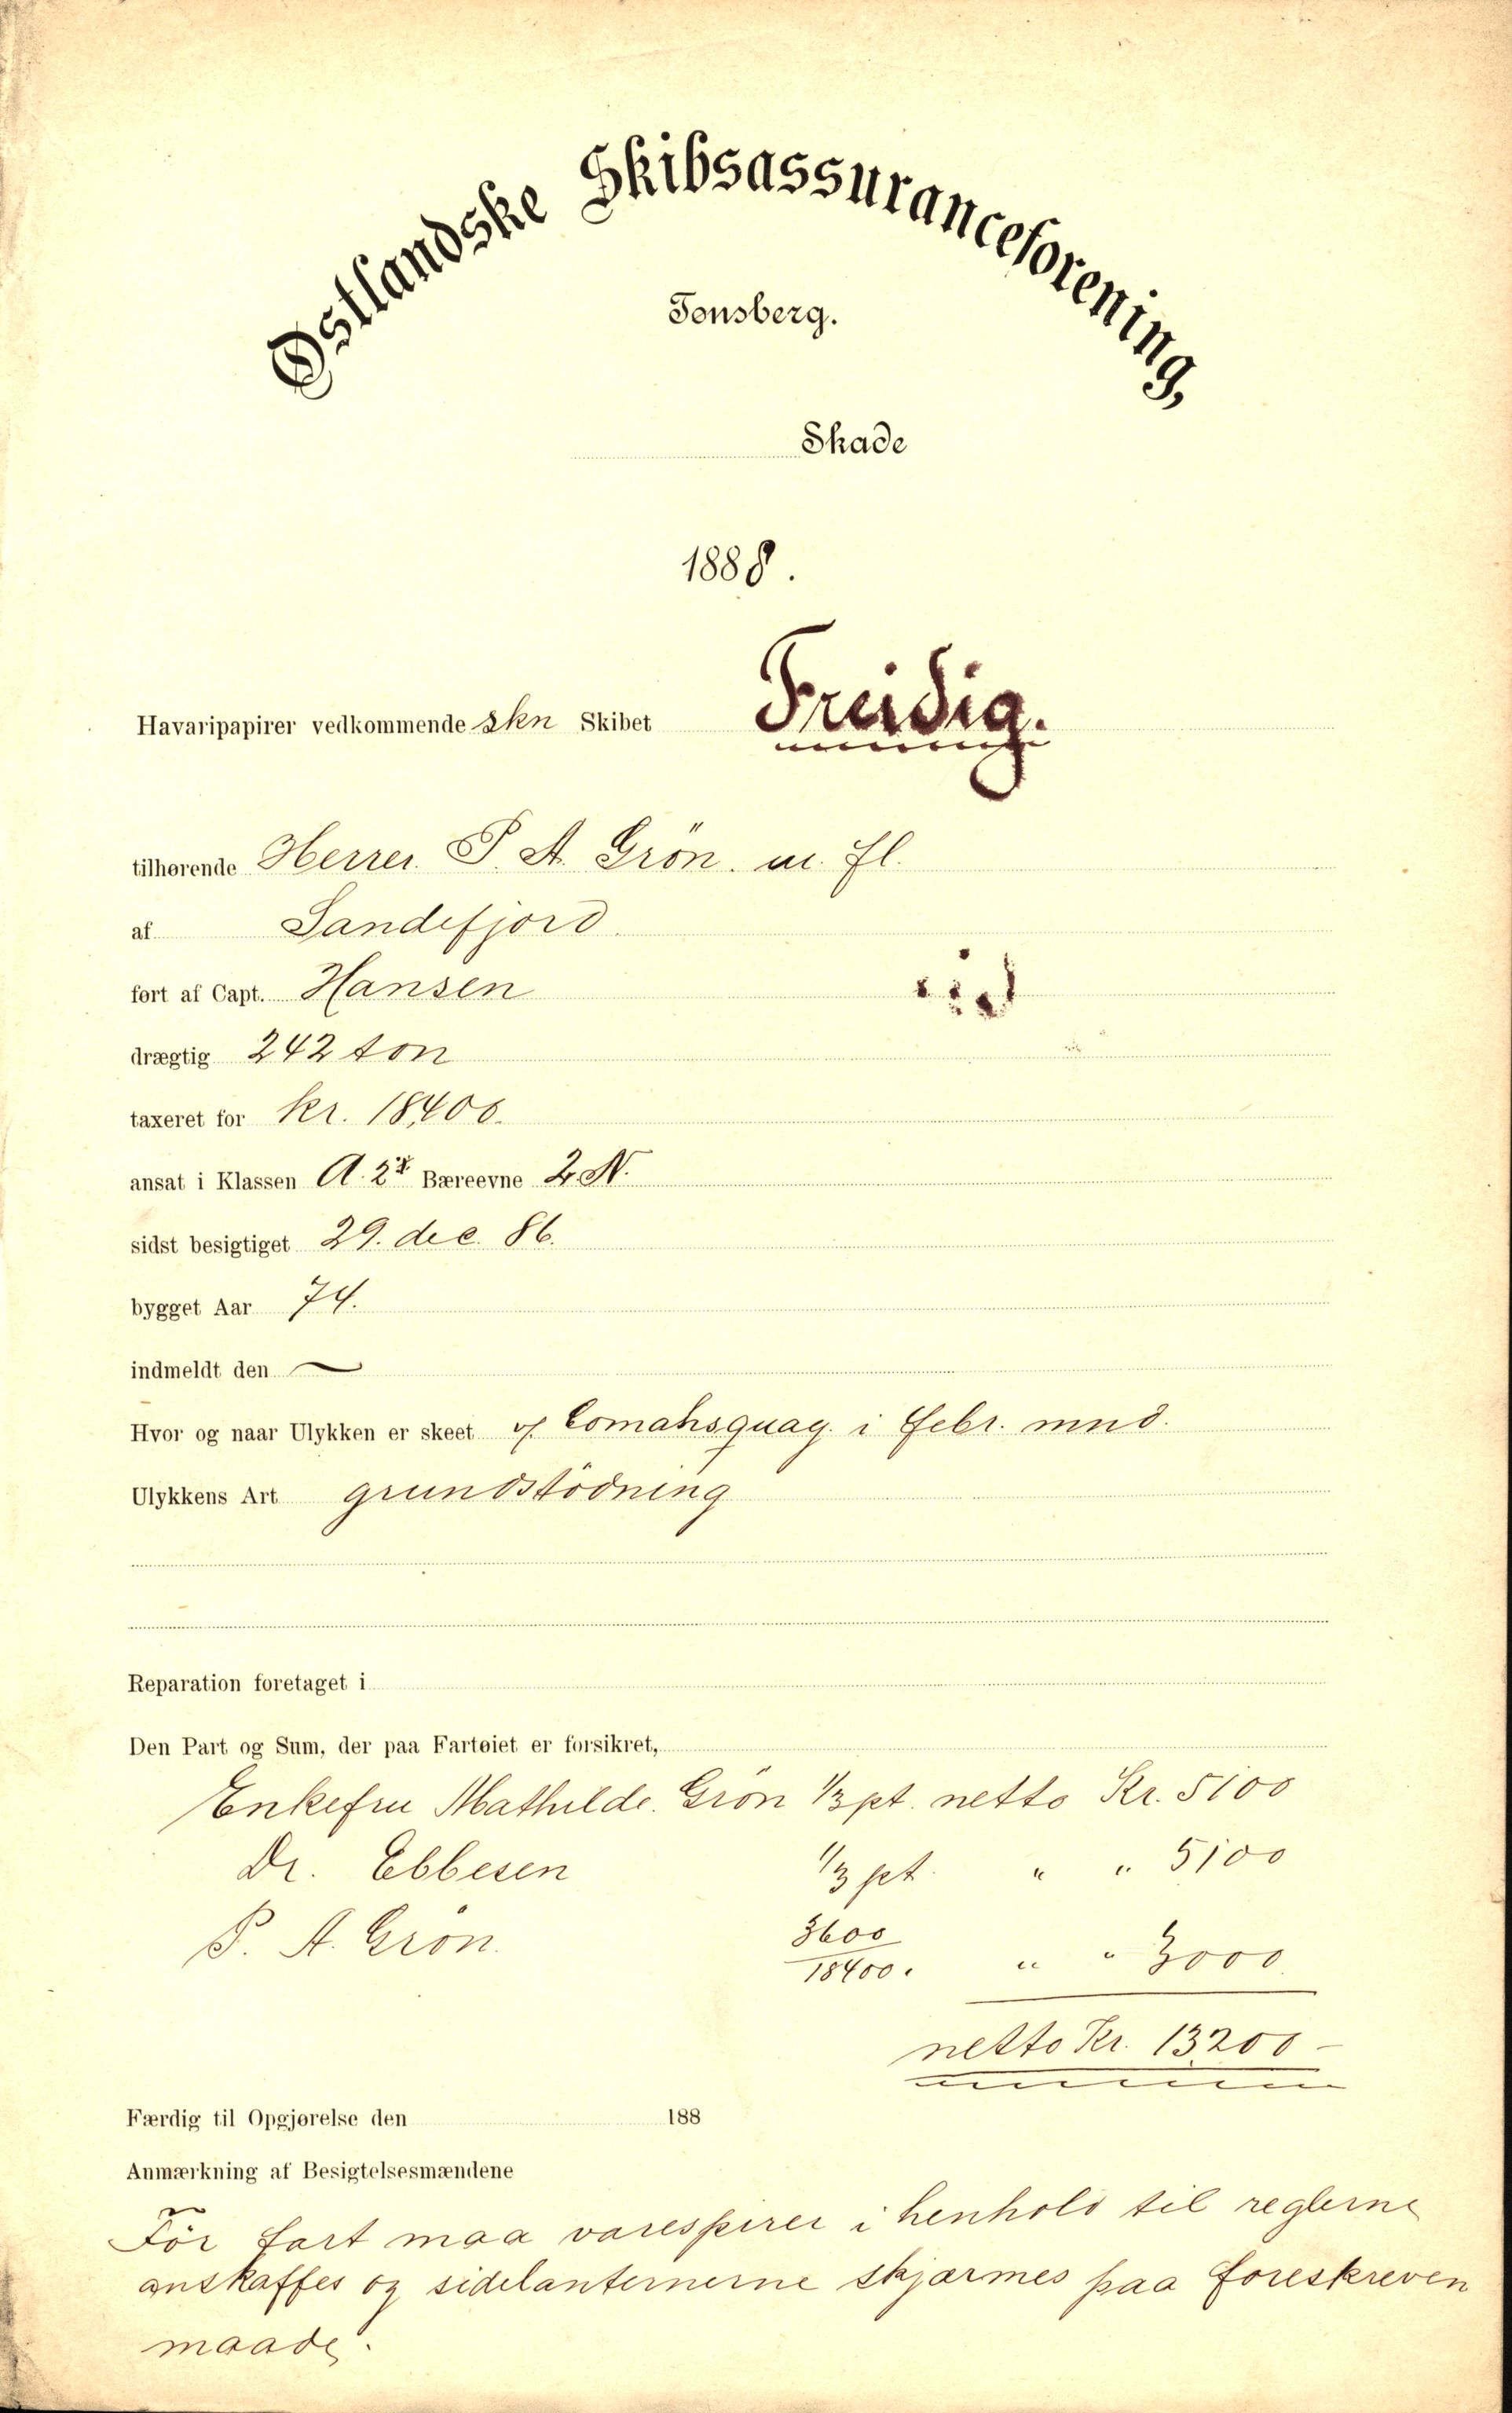 Østlandske Skibsassuranceforening,
Tønsberg.
Skade
1888.
Havaripapirer vedkommende skn Skibet Freidig.
tilhørende Herrer P. A. Grön. m. fl.
af Sandefjord
ført af Capt. Hansen
drægtig 242 ton
taxeret for kr. 18400.
ansat i Klassen A. 2 Bæreevne 2. N.
sidst besigtiget 29. dec. 86.
bygget Aar 74.
indmeldt den —
Hvor og naar Ulykken er skeet v/ Comahsquay. i febr. mnd.
Ulykkens Art grundstödning
Reparation foretaget i
Den Part og Sum, der paa Fartøiet er forsikret,
Enkefru Mathilde. Grön 1/3 pt. netto Kr. 5100
Dr. Ebbesen 1/3 pt. " " 5100
P. A. Grön. 3600/18400. " " 3000
netto Kr. 13200 –
Færdig til Opgjørelse den 188
Anmærkning af Besigtelsesmændene
För fart maa varespirer i henhold til reglerne
anskaffes og sidelanternerne skjærmes paa foreskreven
maade.